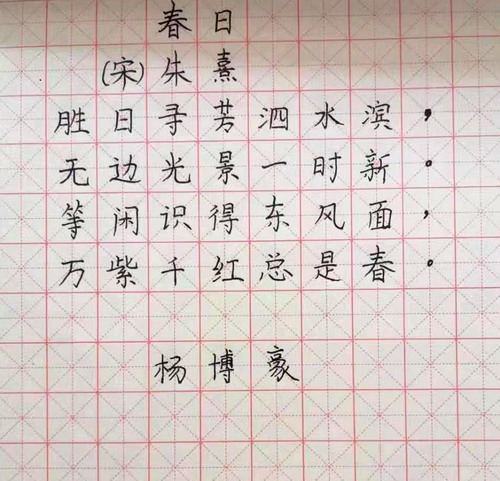 春日
(宋)朱熹
胜日寻芳泗水滨，
无边光景一时新。
等闲识得东风面，
万紫千红总是春。
杨博豪